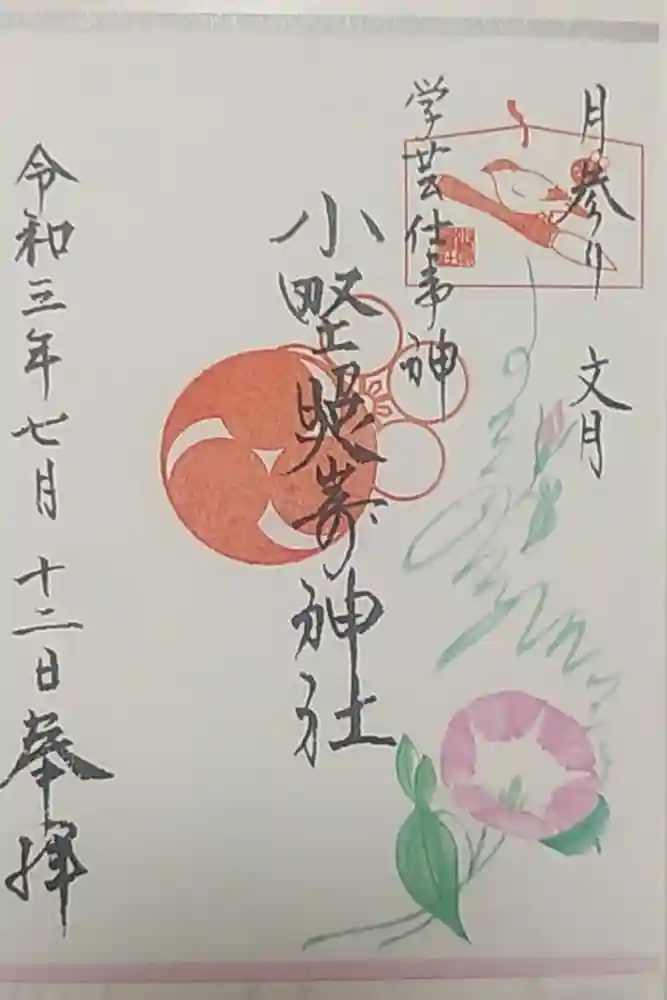 月参り 文月
学芸仕事神
小野照崎神社
令和三年七月十二日奉拝